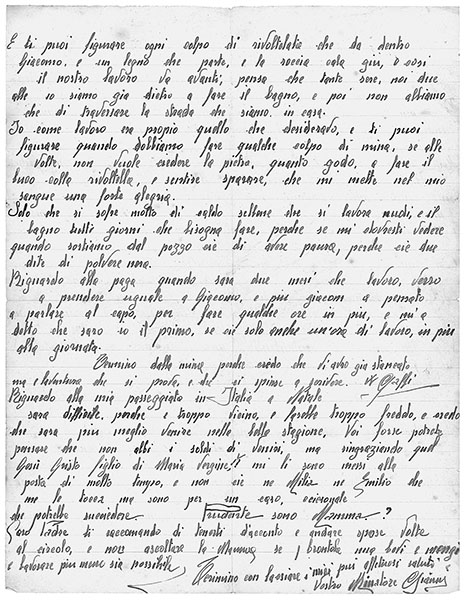 E ti puoi figurare ogni colpo di rivoltellate che da dentro
Giacomo, e un legno che parte, e la roccia cala giu, e così
il nostro lavoro va avanti; pensa che tante sere, noi due
alle 10 siamo gia dietro a fare il bagno, e poi non abbiamo
che di traversare la strada che siamo in casa.
Io come lavoro era propio quello che desideravo, e ti puoi
figurare quando dobbiamo fare qualche colpo di mina, se alle
volte, non vuole cedere la pietra, quanto godo, a fare il
buco colla rivoltella, e sentire sparare, che mi mette nel mio
sangue una forte alegria.
Solo che si sofre molto di caldo sebene che si lavora nudi, e il
bagno tutti giorni che bisogna fare, perche se mi dovresti vedere
quando sortiamo dal pozzo cie di avere paura, perche cie due
dite di polvere nera.
Riguardo alla paga quando sara due mesi che lavoro, verro
a prendere uguale a Giacomo, e piu giacom a pensato
a parlare al capo, per fare qualche ore in piu, e m'a
detto che saro io il primo, se cie solo anche un'ora di lavoro, in piu
alla giornata.
Termino dalla mina, perche credo che vi avro gia stancato
ma e che si prova, e che si spinse a scrivere. W
Riguardo alla mia passeggiata in Italia a Natale
sara difficile, perche e troppo vicino, e sarebbe troppo freddo, e credo
che sara piu meglio venire nella bella stagione, Voi forse potrete
pensare che non abbi i soldi di venirvi, ma ringraziando quel
Gesù Cristo figlio di Maria Vergine mi li sono messi alla
posta di molto tempo, e non cie ne Milia ne Emilio che
me le tocca ma sono per un caso, ecicionale
che potrebbe succedere. sono Mamma?
Caro Padre di raccomando di tenerti d'accunto e andare spose volte
al circolo, e non ascoltare la Mamma se brontola una boti e mangi
e lavorare piu meno sia possibile Termino con lasciare i miei più affettuosi saluti
Vostro Minatore Gianni